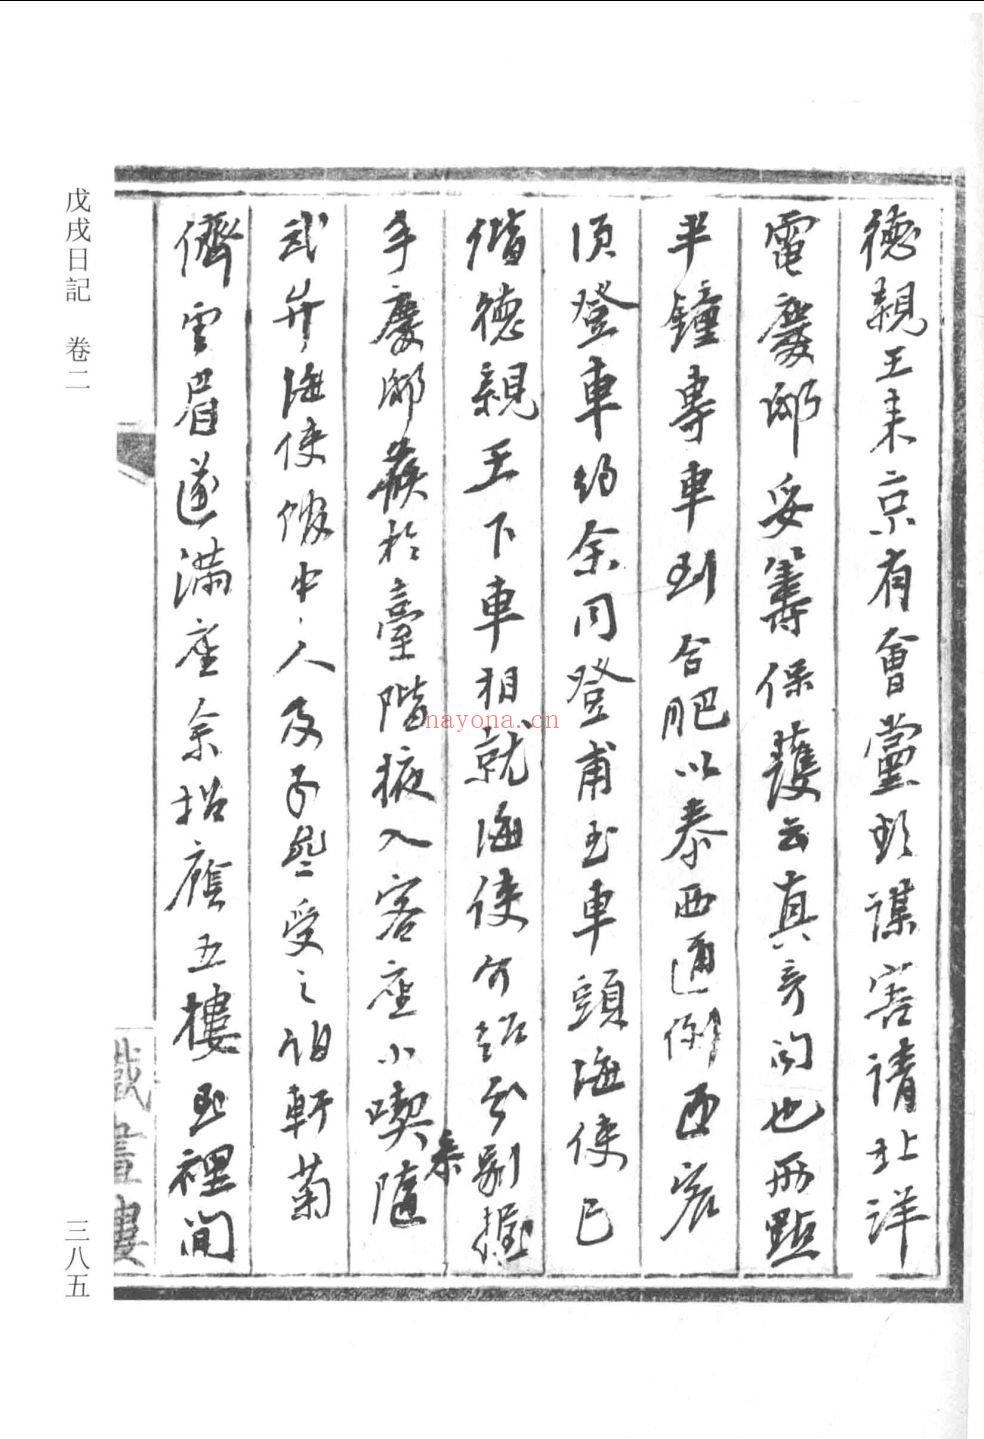 德親王來京有會黨欲謀害請北洋
電慶邸妥籌保護云真奇聞也兩點
半鐘專車到合肥以泰西通例西賓
須登車約余同登甫至車頭海使已
偕德親王下車相就海使介紹分別握
手慶邸候於臺階掖入客座小喫隨
來
武弁海使館中人及子 受之詒軒菊
儕雲眉遂滿座余招應五樓至裡間
織畫樓
戊戌日記 卷二
三八五
nayona.cn